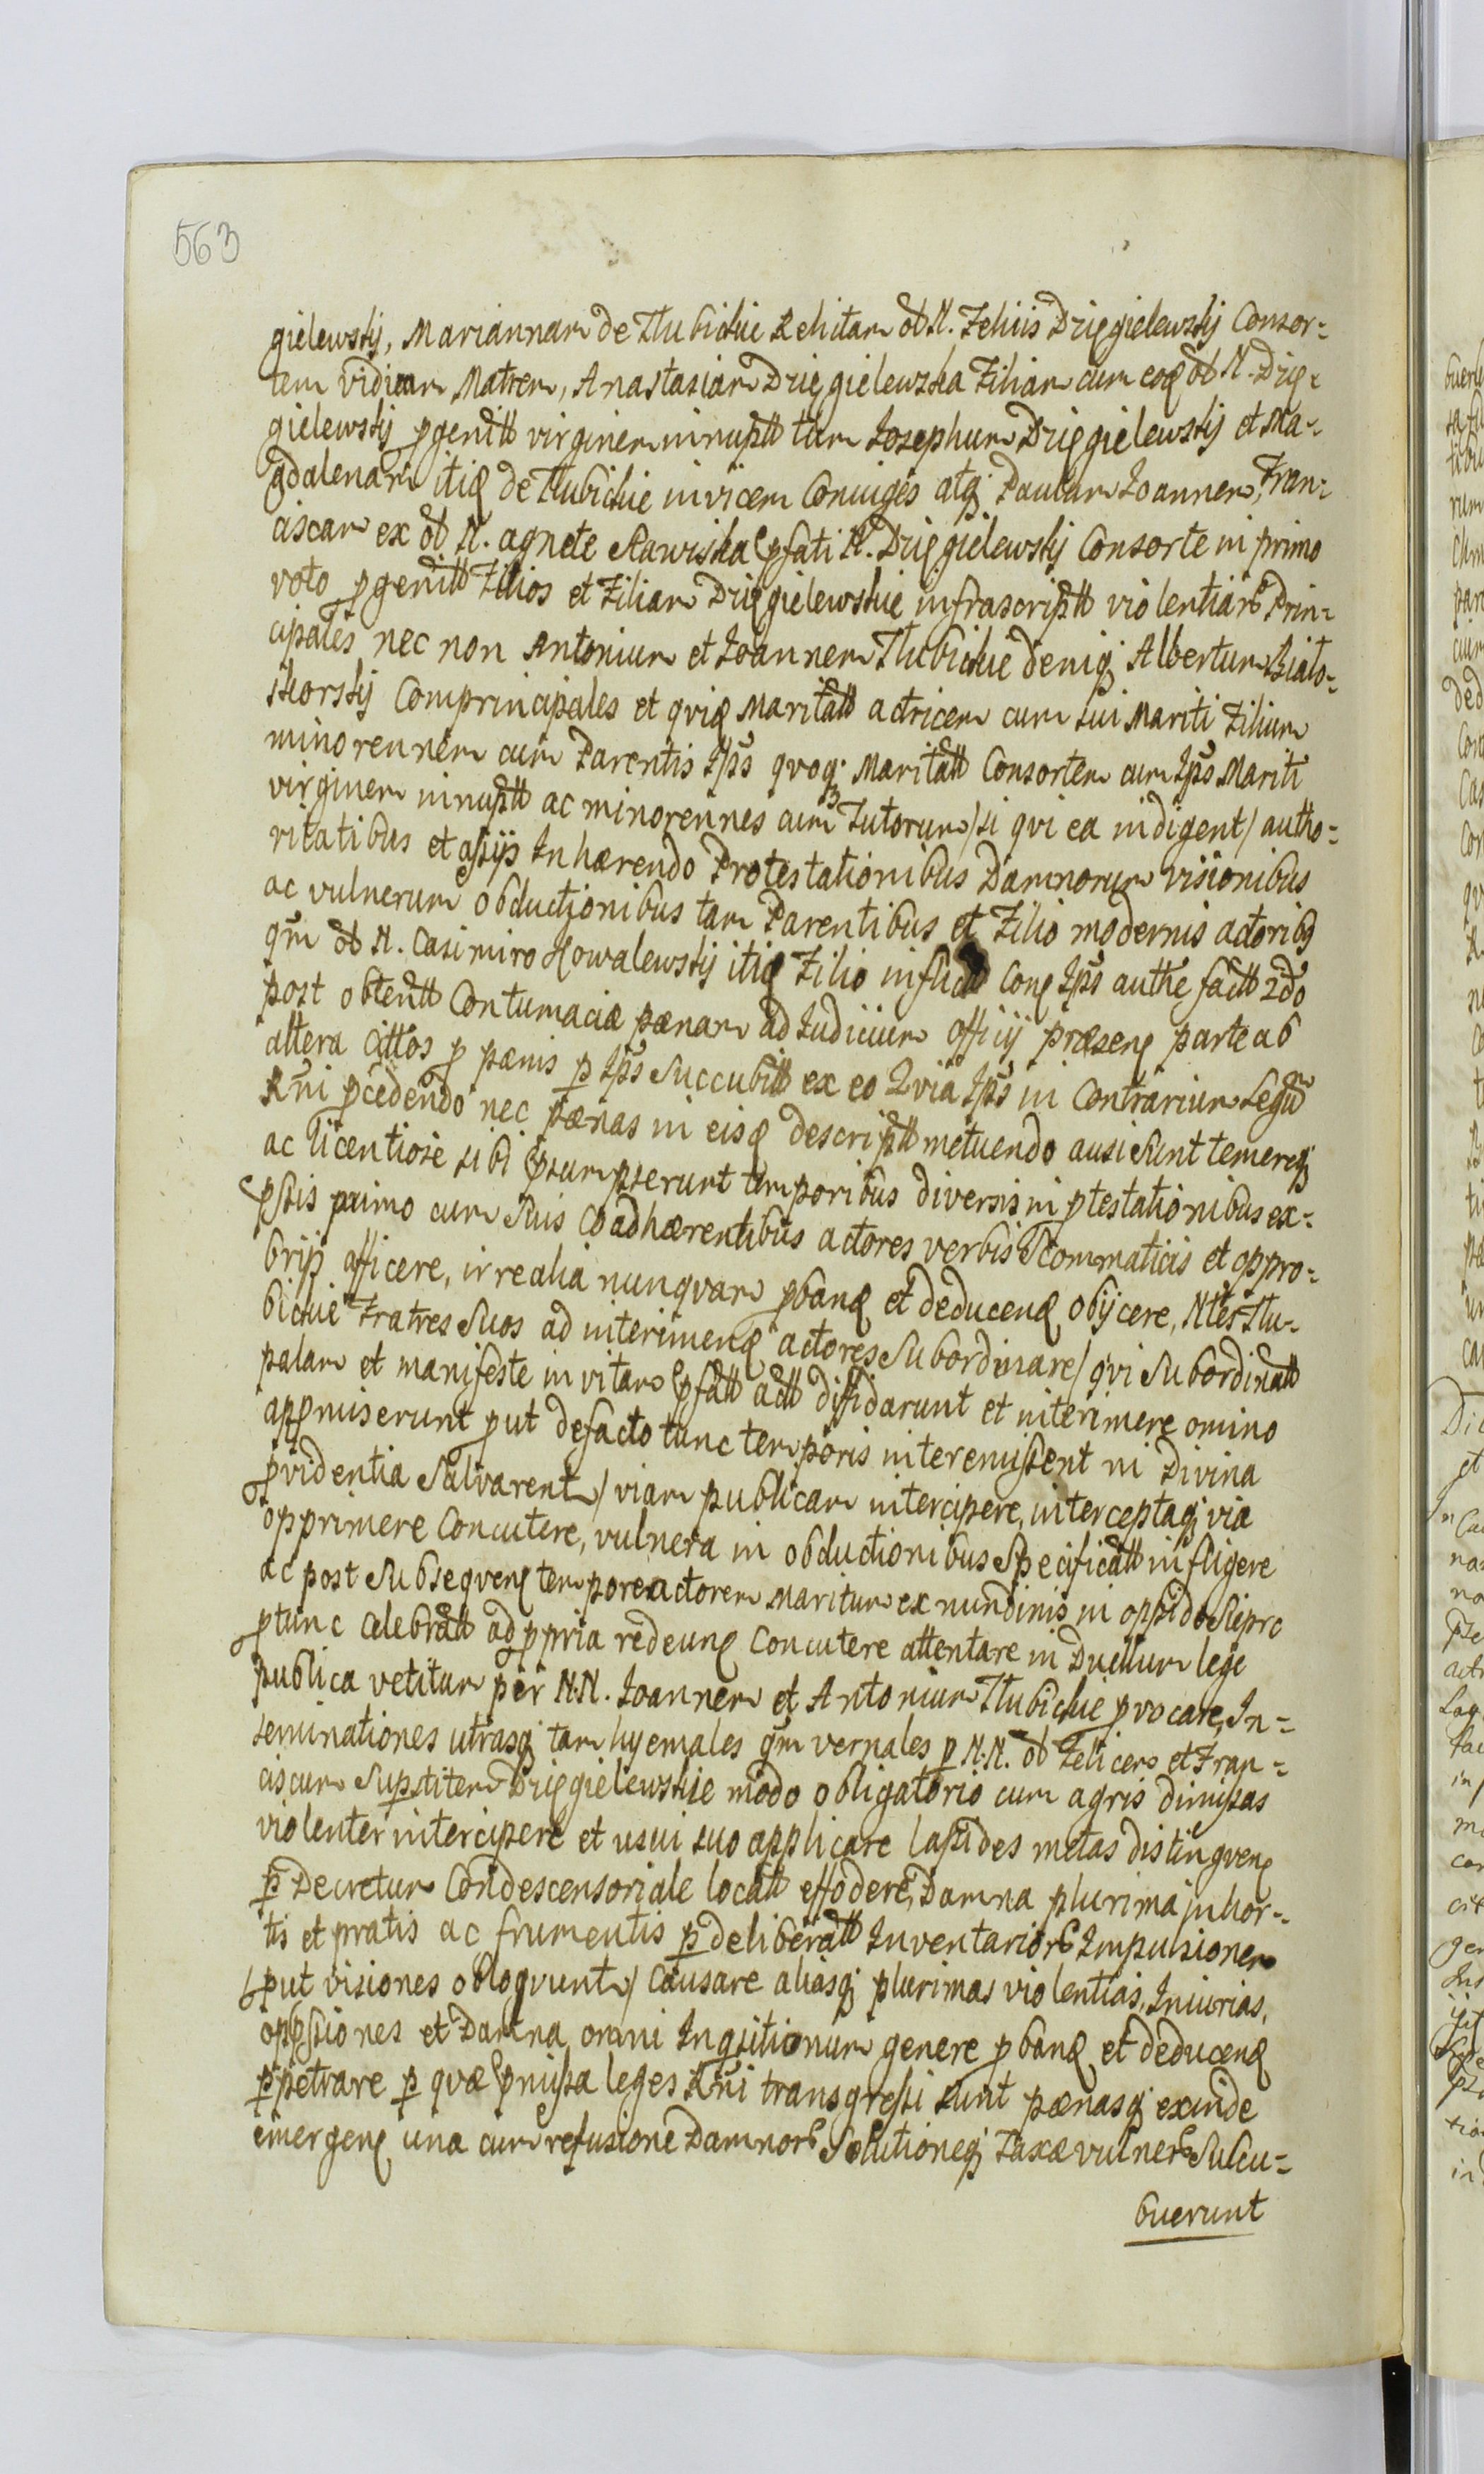 563
gielewskij, Mariannam de Tłubickie Relictam ol N. Felicis Drięgielewskij Consor=
tem viduam Matrem, Anastasiam Drięgielewska Filiam cum eoq ol N. Drię=
gielewskij pgenitt virginem innuptt tum Josephum Drięgielewskij et Ma=
gdalenam itiq de Tłubickie invicem Coniuges atq; Paulum Joannem, Fran=
ciscam ex ol N. agnete Rawiska pfati N. Drięgielewskij Consorte in primo
voto pgenitt Filios et Filiam Drięgielewskie infrascriptt violentiar Prin=
cipales nec non Antonium et Joannem Tłubickie deniq; Albertum Biało=
skorskij Comprincipales et qviq Maritatt actricem cum sui Mariti Filium
minorennem cum Parentis Ipss qvoq; Maritatt Consortem cum Ipss Mariti
virginem innuptt ac minorennes cum Tutorum / si qvi ea indigent / autho=
ritatibus et assijs Inhærendo Protestationibus Damnorum visionibus
ac vulnerum obductionibus tam Parentibus et Filio modernis actoribq
qm ol N. Casimiro Kowalewskij itiq Filio inflict Conq Ipss authe factt 2do
post obtentt Contumaciæ pænam ad Iudicium officij præsenq parte ab
altera Cittos p pænis p Ipss Succubitt ex eo Qvia Ipsi in Contrarium Legu
Rni pcedendo nec pænas in eisq descriptt metuendo ausi Sunt temereq;
ac licentiose sibi psumpserunt temporibus diversis in ptestationibus ex=
pssis primo cum Suis Coadhærentibus actores verbis Scommaticis et oppro=
brijs afficere, irrealia nunqvam pbanq et deducenq obijcere, Ntes Tłu=
bickie Fratres Suos ad interimenq actores Subordinare / qvi Subordinatt
palam et manifeste in vitam pfatt actt diffidarunt et interimere omino
appmiserunt put defacto tunc temporis interemissent ni Divina
pvidentia Salvarent / viam publicam intercipere, interceptaq; via
opprimere Concutere, vulnera in obductionibus Specificatt infligere
ac post Subseqvenq tempore actorem Maritum ex nundinis in oppido Sierpc
ptunc Celebratt ad ppria redeunq Concutere attentare in Duellum lege
publica vetitum per N.N. Joannem et Antonium Tłubickie pvocare, In=
seminationes utrasq; tam hyemales qm vernales p N.N. ol Felicem et Fran=
ciscum Supstitem Drięgielewskie modo obligatorio cum agris dimissas
violenter intercipere et usui suo applicare lapides metas distingvenq
p Decretum Condescensoriale locatt effodere, Damna plurima in hor=
tis et pratis ac frumentis p deliberatt Inventarior Impulsionem
/ put visiones obloqvunt / Causare aliasq; plurimas violentias, Iniurias,
oppssiones et Damna omni Inqsitionum genere pbanq et deducenq
ppetrare p qvæ pmissa leges Rni transgressi sunt pænasq; exinde
emergenq una cum refusione Damnor Solutioneq; Taxæ vulner Succu=
buerunt